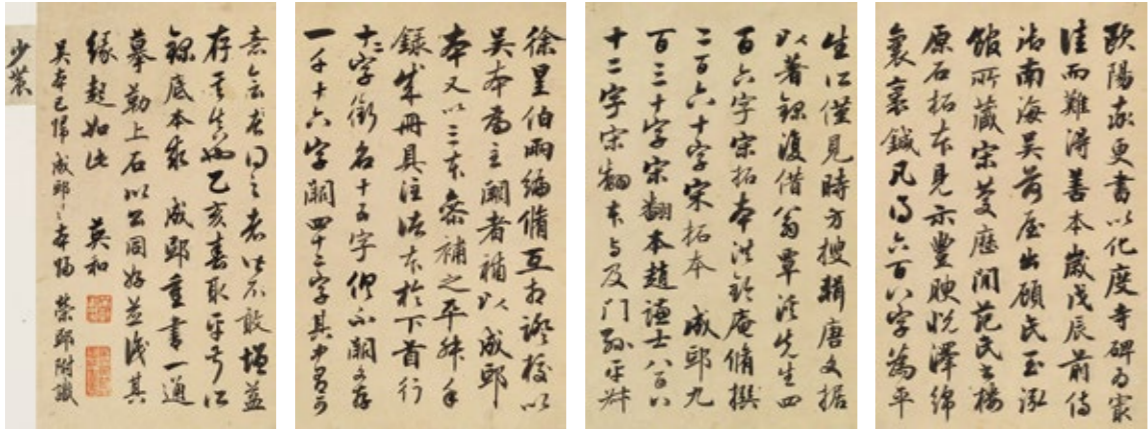 歐陽率更書以化度寺碑為最
佳而難得善本歲戊辰前侍
御南海吳荷屋出顧氏玉泓
館所藏宋慶歷間范氏書樓
原石拓本見示豐腴悅澤綿
裏裹鍼凡得六百八字為平
生所僅見時方搜輯唐文据
以著錄復借翁覃溪先生四
百六字宋拓本洪鈴庵脩撰
二百六十字宋拓本成邸九
百三十字宋翻本趙謙士八百八
十二字宋翻本与及門孫平叔
徐星伯兩編脩互相證挍以
吳本為主闕者補以成邸
本又以三本叅補之平叔手
錄成冊具注諸本於下首行
十二字銜名十五字俱不闕文存
一千十六字闕四十二字其中有可
意會者同之者皆不敢增益
存其真也乙亥春取平叔所
錄底本求成邸重書一通
摹勒上石以公同好並識其
緣起如此 英和
吳本已歸成邸之本歸榮邸附識
少農